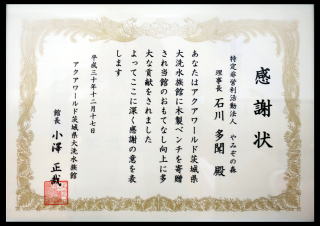 感謝状
特定非営利活動法人 やみぞの森
理事長 石川 多聞 殿
あなたはアクアワールド茨城県
大洗水族館に木製ベンチを寄贈
され当館のおもてなし向上に多
大な貢献をされました
よってここに深く感謝の意を表
します
平成三十年十二月十七日
アクアワールド茨城県大洗水族館
館長 小澤 正哉